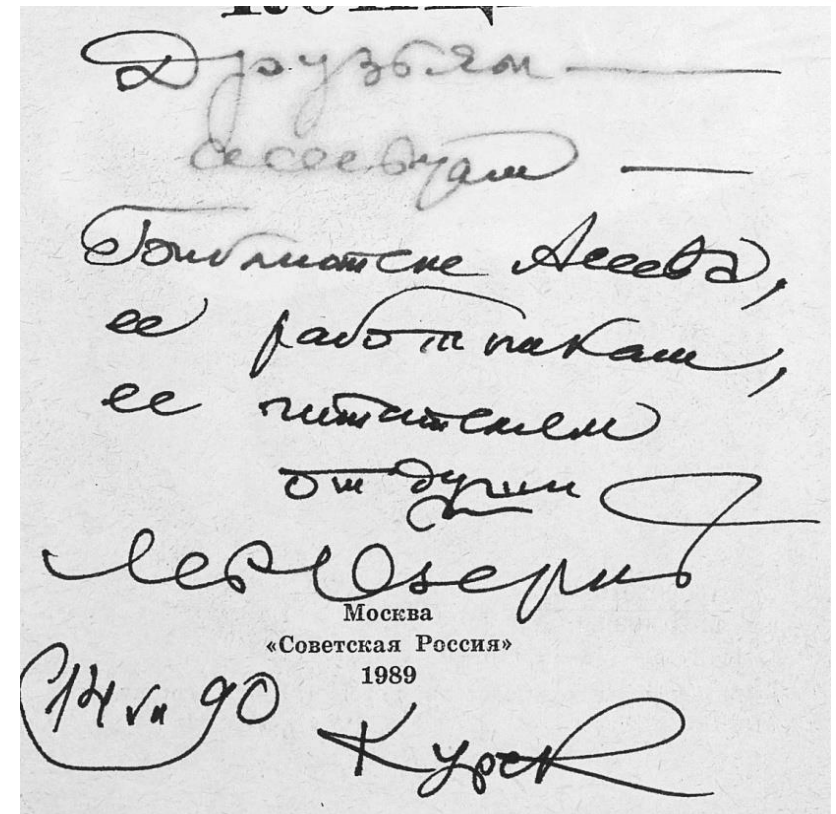 Друзьям —
асеевцам —
Библиотеке Асеева,
ее работникам,
ее читателям
от души
Лев Озеров
Москва
«Советская Россия»
1989
14 VII 90
Курск